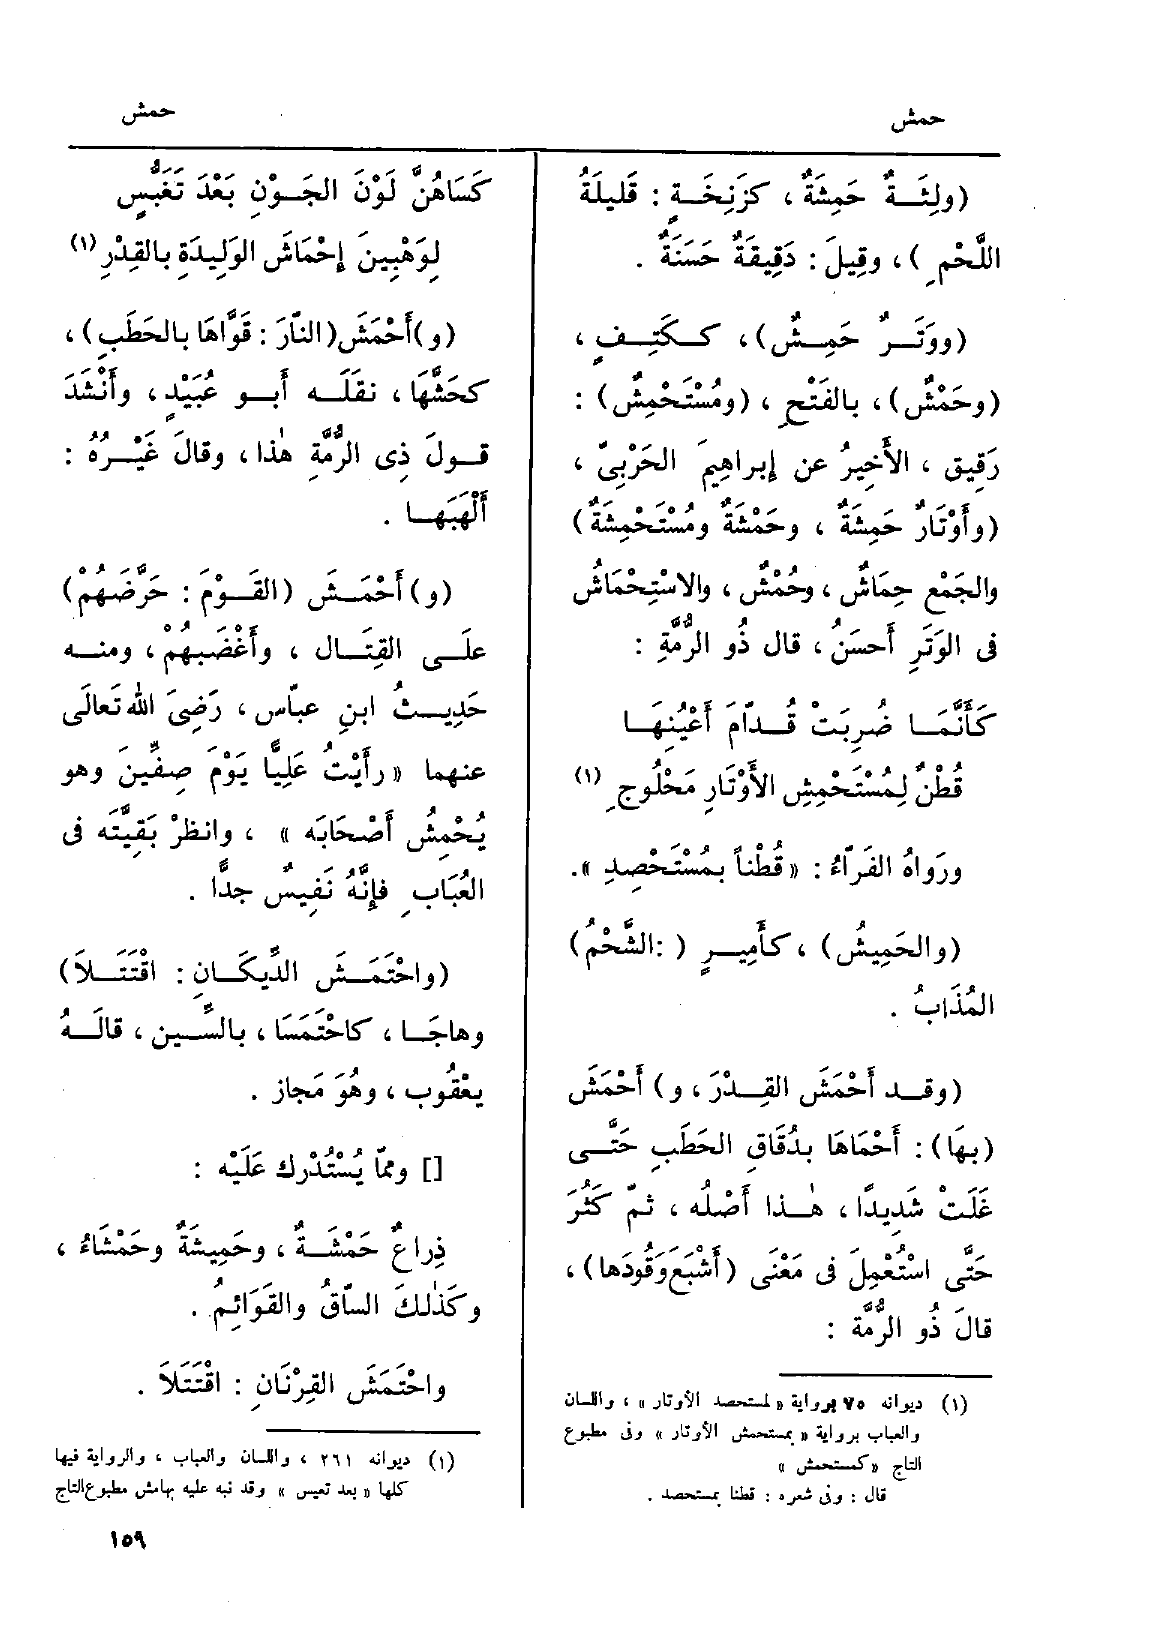 حمش
حمش
(ولِثَةٌ حَمِشَةٌ ، كَزَنِخَةٍ : قَلِيلَةُ
اللَّحْمِ) ، وقِيلَ : دَقِيقَةٌ حَسَنَةٌ .
(ووَتَرٌ حَمِشٌ) ، ككَتِفٍ ،
(وحَمْشٌ) ، بالفَتْحِ ، (ومُسْتَحْمِشٌ) :
رَقِيق ، الأَخِيرُ عن إبراهِيمَ الحَرْبِىّ ،
(وأَوْتَارٌ حَمِشَةٌ ، وحَمْشَةٌ ومُسْتَحْمِشَةٌ)
والجَمْع حِمَاشٌ ، وحُمْشٌ ، والاسْتِحْمَاشُ
فى الوَتَرِ أَحسَنُ ، قال ذُو الرُّمَّةِ :
كَأَنَّمَا ضُرِبَتْ قُدّامَ أَعْيُنِهَا
قُطْنٌ لِمُسْتَحْمِشِ الأَوْتَارِ مَحْلُوجِ (١)
ورَواهُ الفَرّاءُ : « قُطْناً بمُسْتَحْصِدِ ».
(والحَمِيشُ) ، كأَمِيرٍ (:الشَّحْمُ)
المُذَابُ .
(وقد أَحْمَشَ القِدْرَ ، و) أَحْمَشَ
(بهَا) : أَحْمَاهَا بدُقَاقِ الحَطَبِ حَتَّى
غَلَتْ شَدِيدًا ، هٰذا أَصْلُه ، ثمّ كَثُرَ
حَتَّى اسْتُعْمِلَ فى مَعْنَى (أَشْبَعَ وَقُودَها) ،
قالَ ذُو الرُّمَّة :
(١) ديوانه ٧٥ برواية « لمستحصد الأوتار » ، واللسان
والعباب برواية « بمستحمش الأوتار » وفى مطبوع
التاج « كمستحمش »
قال : وفى شعره : قطنا بمستحصد .
كَسَاهُنَّ لَوْنَ الجَوْنِ بَعْدَ تَغَبُّسٍ
لِوَهْبِينَ إِحْمَاشَ الوَلِيدَةِ بالقِدْرِ (١)
(و) أَحْمَشَ (النّارَ : قَوَّاهَا بالحَطَبِ) ،
كحَشَّهَا ، نقَلَه أَبو عُبَيْدٍ ، وأَنْشَدَ
قولَ ذِى الرُّمَّةِ هٰذا ، وقالَ غَيْرُهُ :
أَلْهَبَها .
(و) أَحْمَشَ (القَوْمَ : حَرَّضَهُمْ)
علَى القِتَالِ ، وأَغْضَبهُمْ ، ومنه
حَدِيثُ ابنِ عبّاس ، رَضِىَ اللهُ تَعالَى
عنهما « رأَيْتُ عَلِيًّا يَوْمَ صِفِّينَ وهو
يُحْمِشُ أَصْحَابَه » ، وانظرْ بَقِيَّتَه فى
العُبَابِ فإِنَّهُ نَفِيسٌ جدًّا .
(واحْتَمَشَ الدِّيكَانِ : اقْتَتَلاَ)
وهاجَا ، كاحْتَمَسَا ، بالسِّين ، قالَهُ
يعْقُوب ، وهُوَ مَجاز .
[] وممّا يُسْتَدْرك عَلَيْه :
ذِراعٌ حَمْشَةٌ ، وحَمِيشَةٌ وحَمْشَاءُ ،
وكَذٰلكَ السّاقُ والقَوَائِمُ .
واحْتَمَشَ القِرْنَانِ : اقْتَتَلاَ .
(١) ديوانه ٢٦١ ، واللسان والعباب ، والرواية فيها
كلها « بعد تعيس » وقد نبه عليه بهامش مطبوع التاج
١٥٩